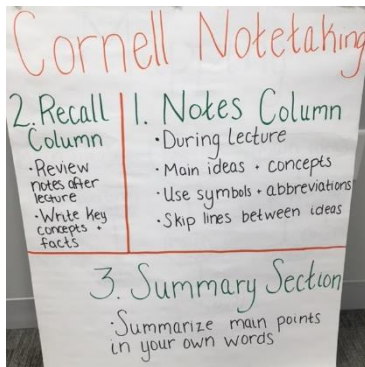 Cornell Notetaking
2. Recall
Column
• Review
notes after
lecture
• Write Key
concepts +
facts
1. Notes Column
• During Lecture
• Main ideas + concepts
• Use symbols + abbreviations
• Skip lines between ideas
3. Summary Section
• Summarize main points
in your own words